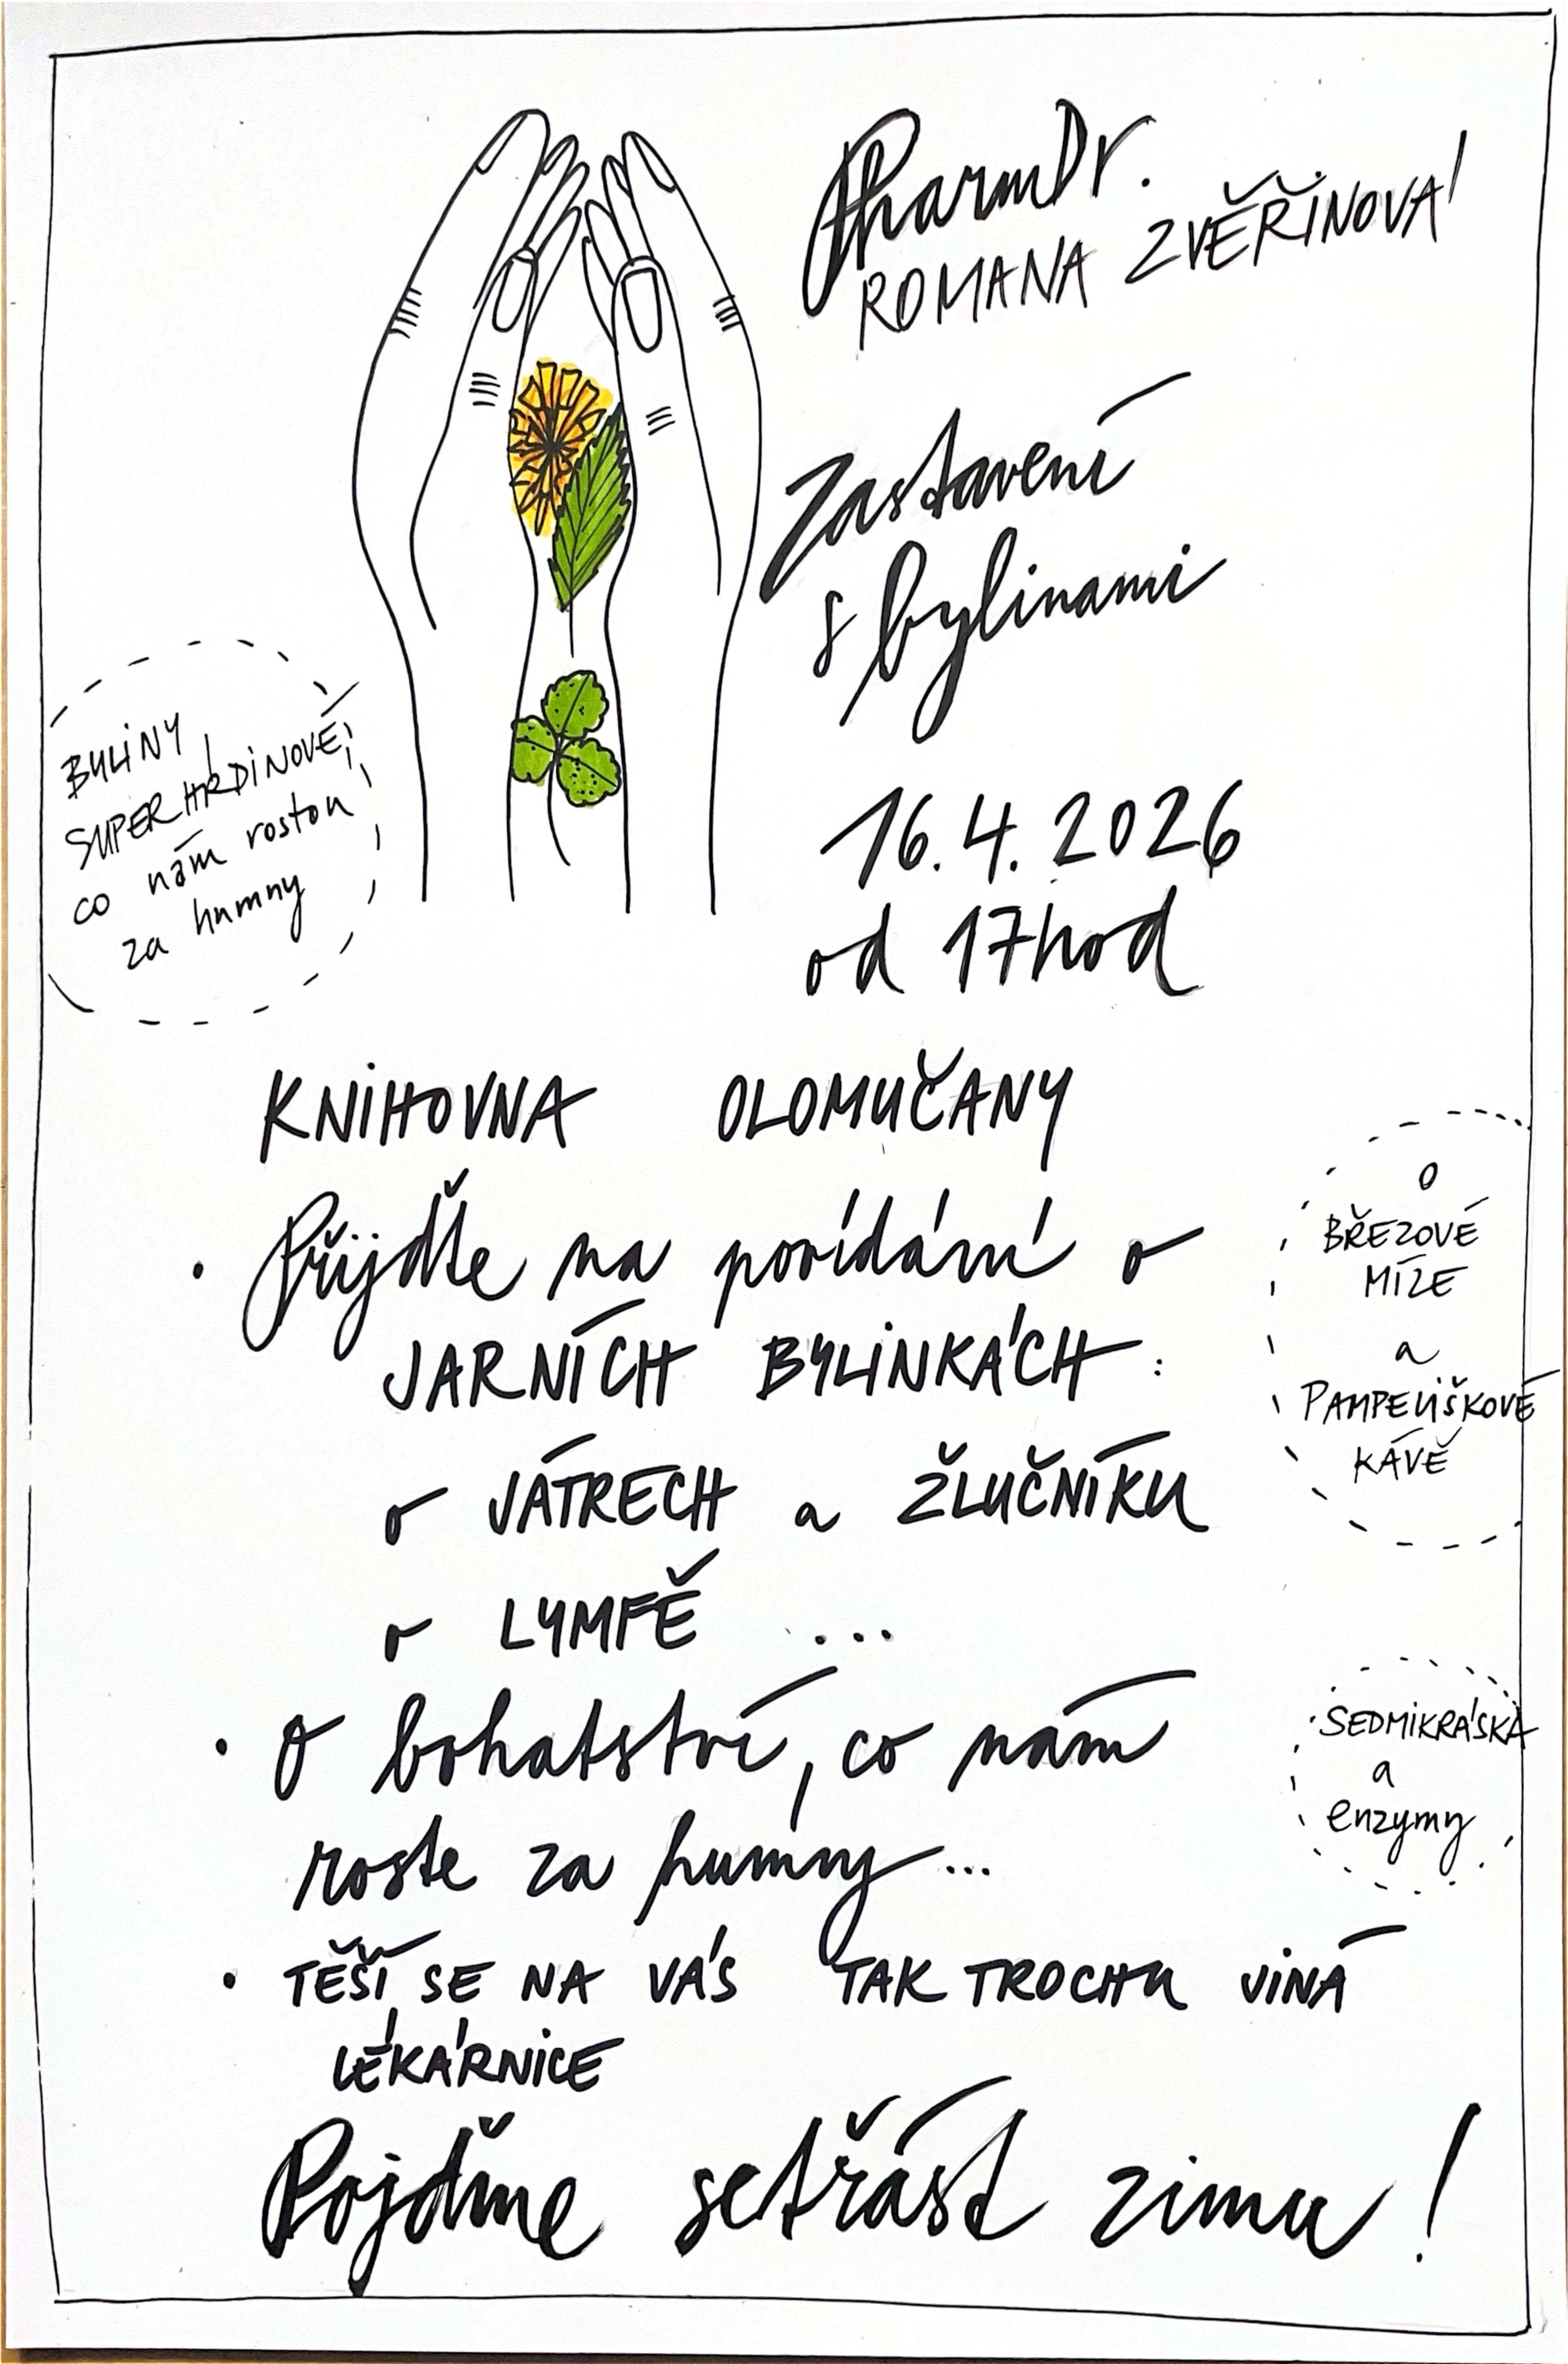 PharmDr.
ROMANA ZVĚŘINOVÁ
Zastavení
s bylinami
16.4.2026
od 17hod
BYLINY
SUPERHRDINOVÉ,
co nám rostou
za humny
KNIHOVNA OLOMUČANY
• Přijďte na povídání o
JARNÍCH BYLINKÁCH:
o JÁTRECH a ŽLUČNÍKU
o LYMFĚ ...
• O bohatství, co nám
roste za humny...
• TĚŠÍ SE NA VÁS TAK TROCHU JINÁ
LÉKÁRNICE
Pojďme setřást zimu!
O
BŘEZOVÉ
MÍZE
a
PAMPELIŠKOVÉ
KÁVĚ
SEDMIKRÁSKA
a
enzymy